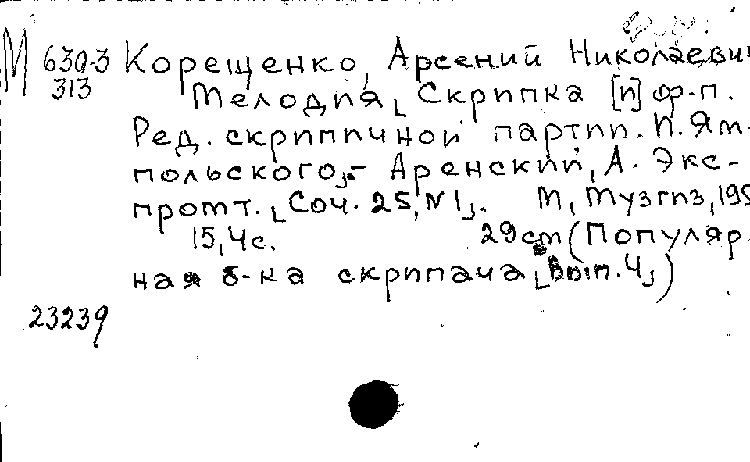 М 630-3 Корещенко, Арсений Николаевич
313 Мелодия, Скрипка [и] ф-п.
Ред. скрипичной партии. И. Ям-
польского, - Аренский, А. Экс-
промт. [Соч. 25, №1]. М, Музгиз, 195
15, 4 с. 29 cm (Популяр-
ная б-ка скрипача [Вып. 4])
23239